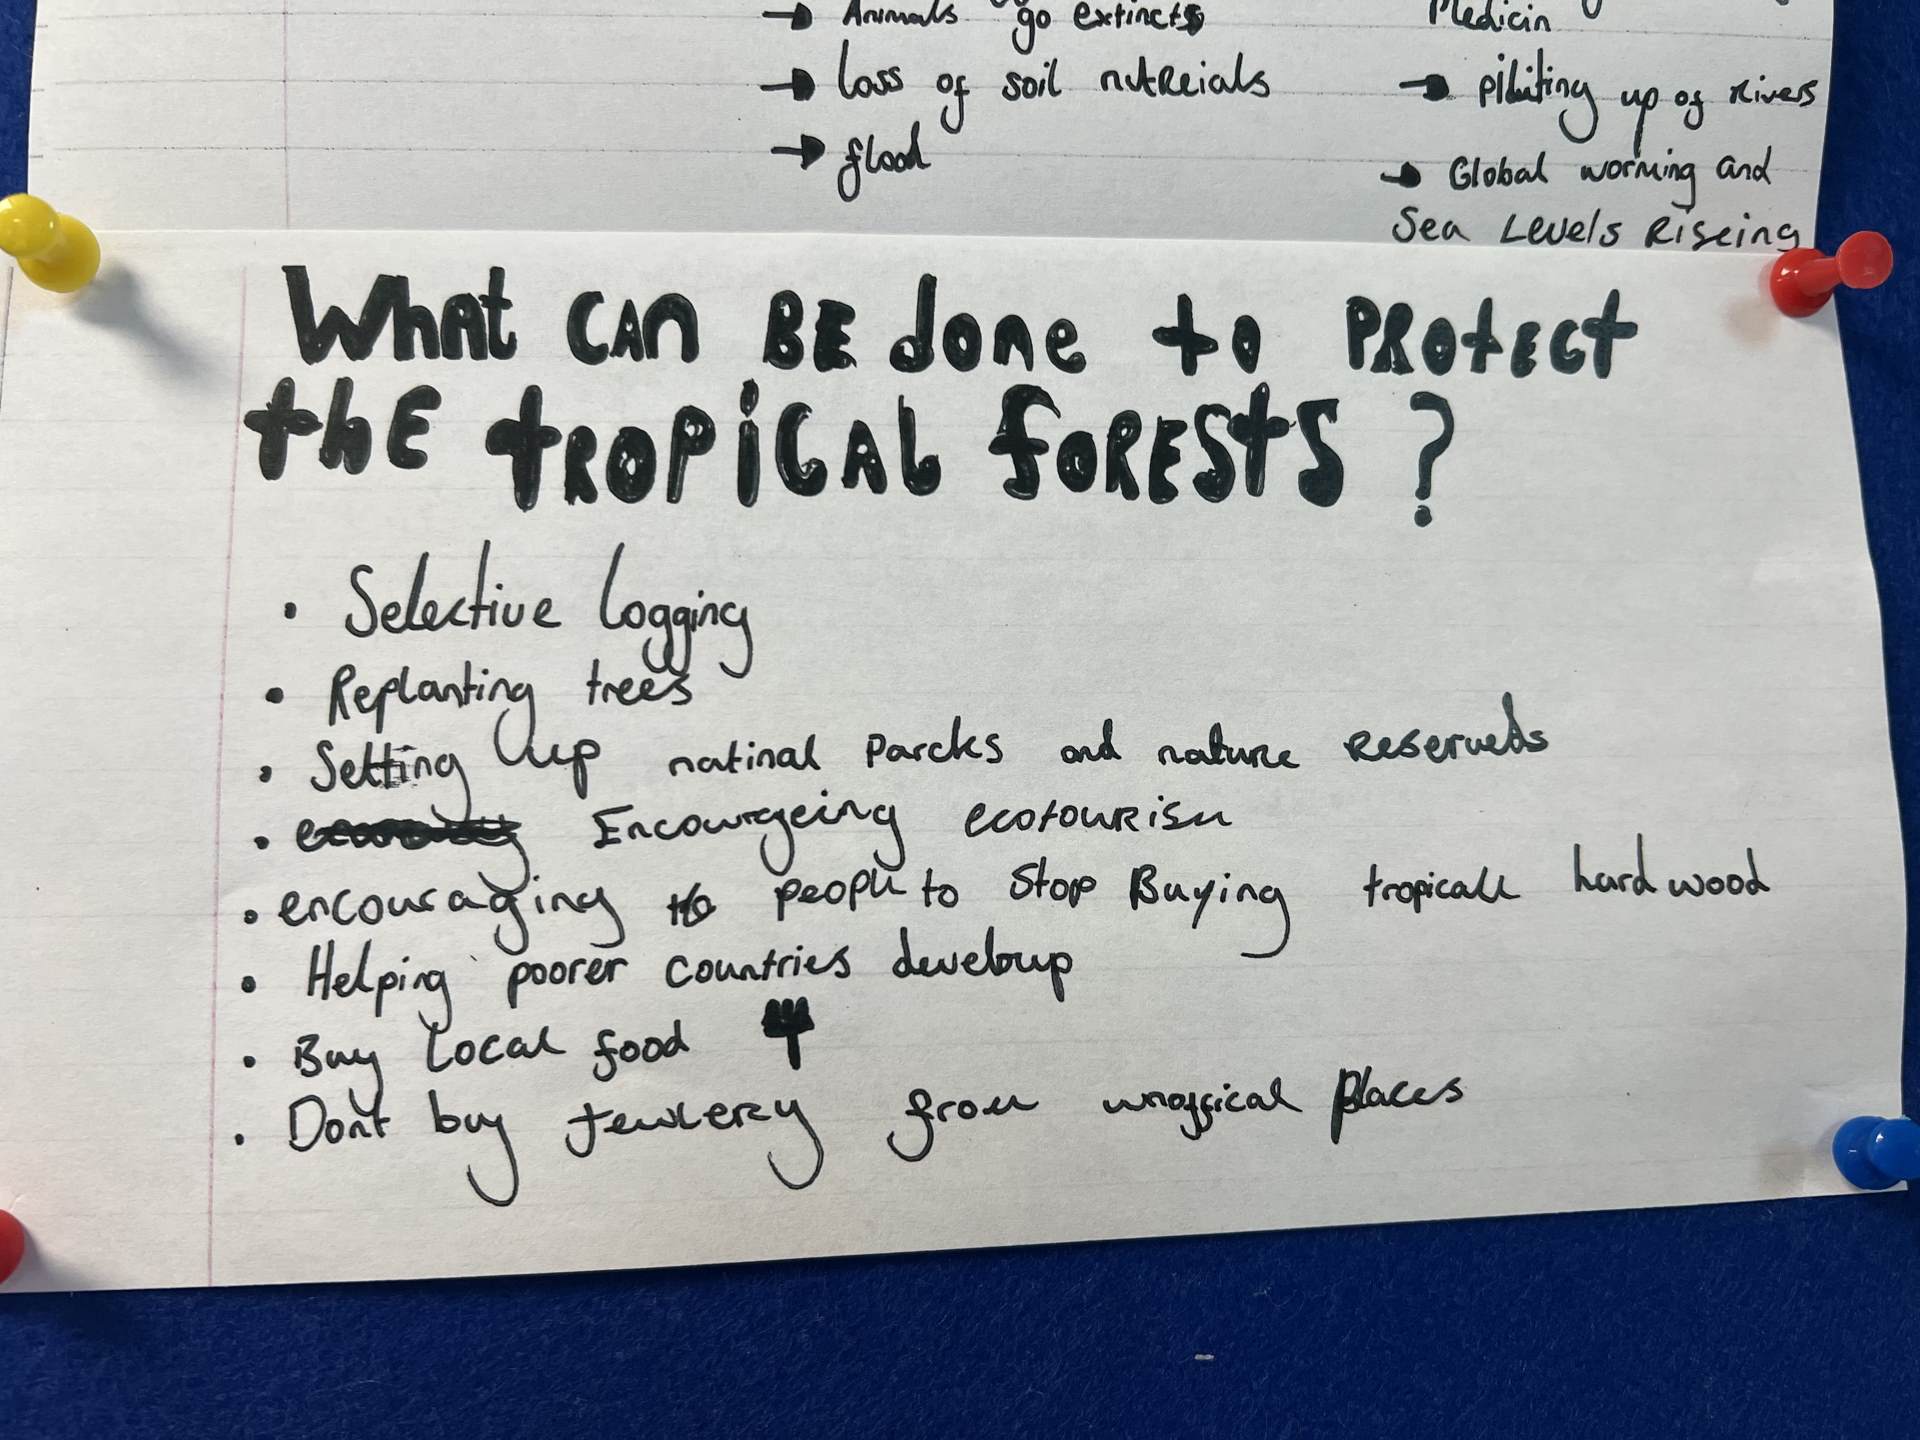 → Animals go extincts
→ loss of soil nutreials
→ flood
Medicin
→ piluting up of rivers
→ Global worming and
Sea Levels Riseing
What CAn BE done to PROtECt
thE tROPiCAL foREStS ?
• Selective logging
• Replanting trees
• Setting up natinal Parcks and nature Reserveds
• Encourgeing ecotourism
• encouraging people to Stop Buying tropicall hard wood
• Helping poorer countries develoup
• Buy Local food
• Dont buy Jewlery from unoffical places